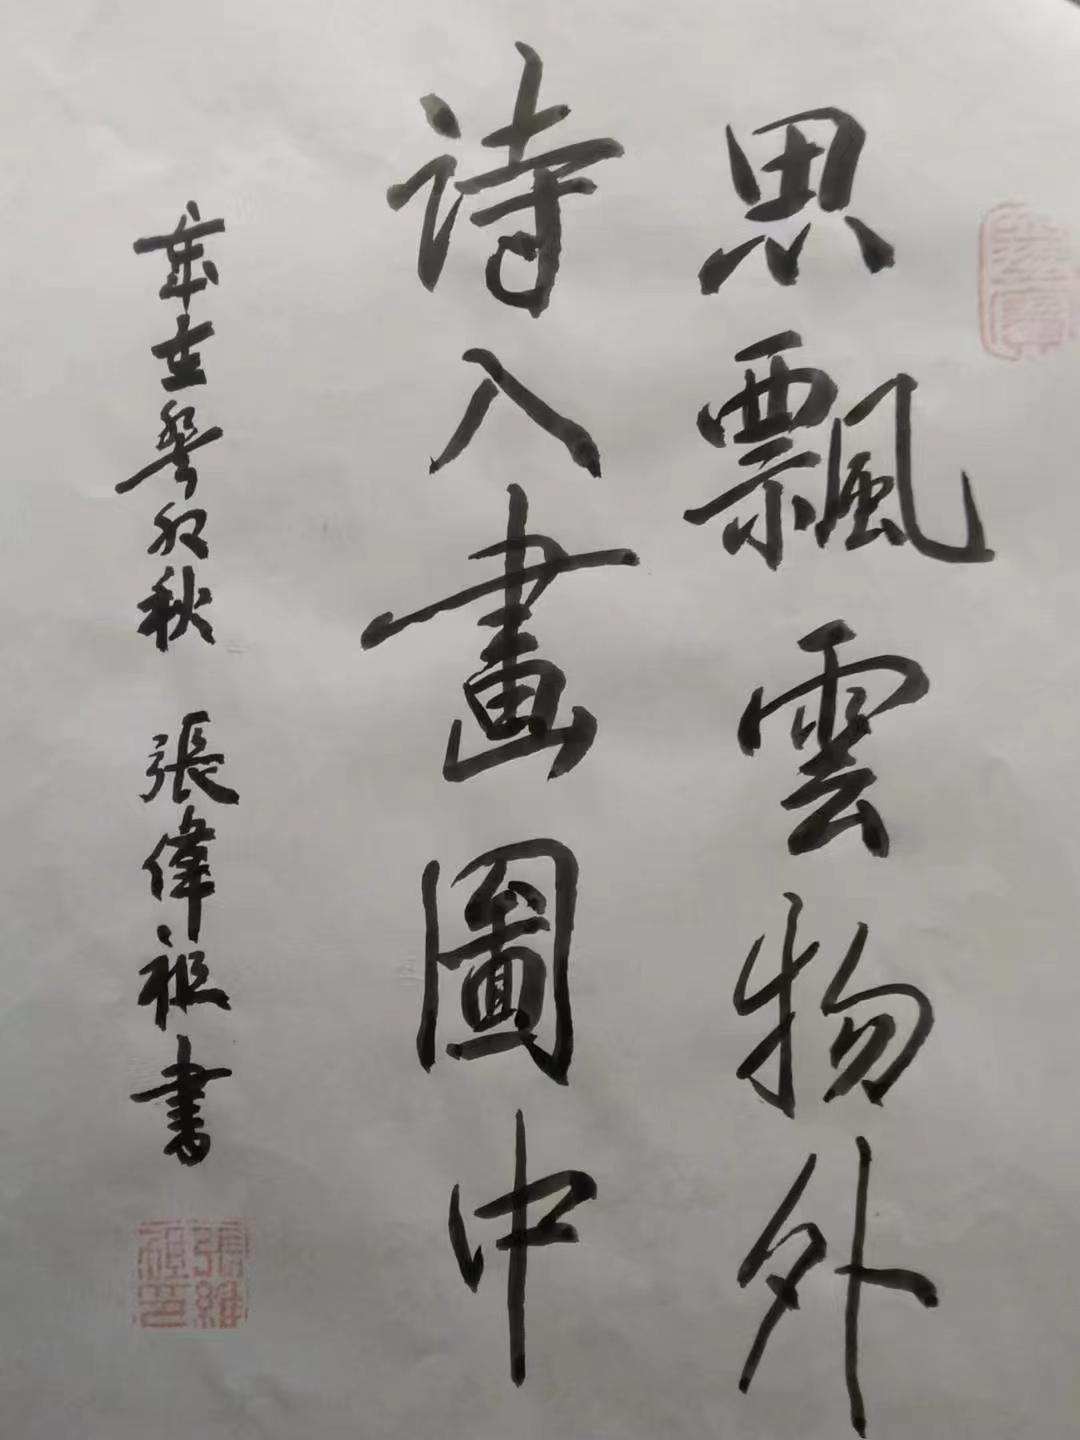 思飄雲物外
詩入畫圖中
歲在癸卯秋 張偉祖書
張維祖印